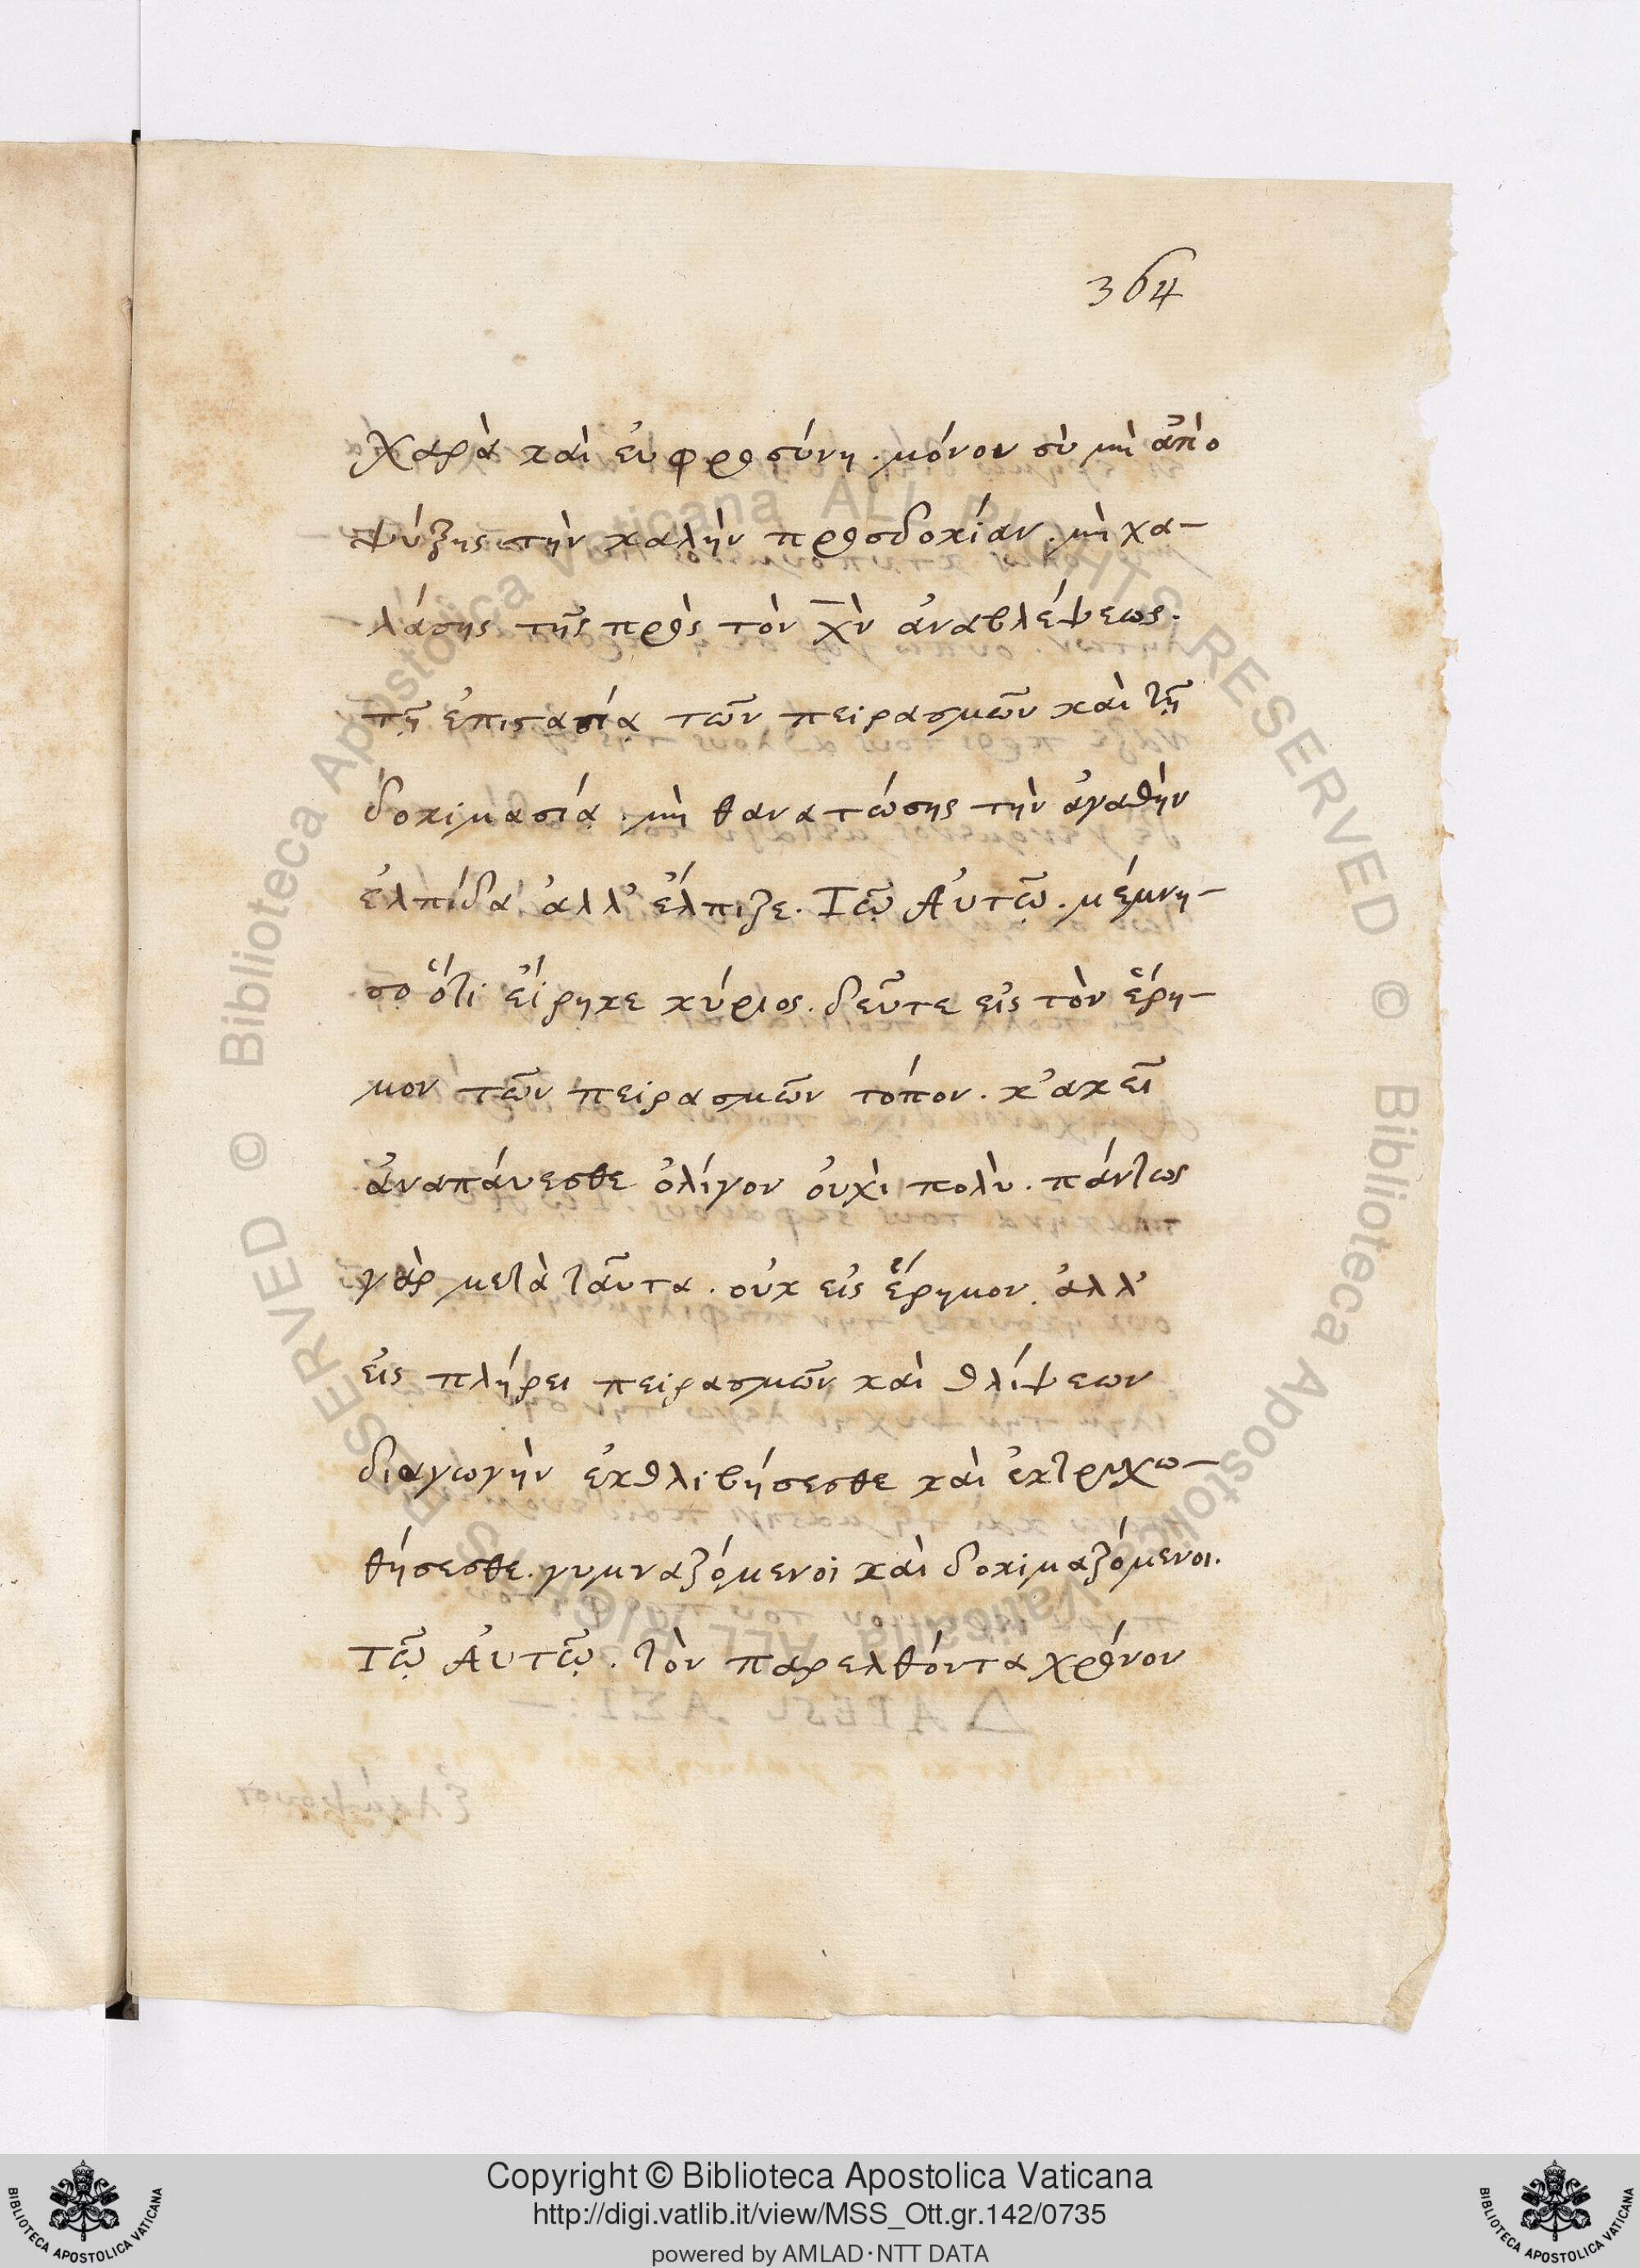 364
Χαρὰ καὶ εὐφροσύνη. μόνον σὺ μὴ ἀπο
ψύξῃς τὴν καλὴν προσδοκίαν. μὴ χα-
λάσῃς τῆς πρὸς τὸν χν ἀναβλέψεως.
τῇ ἐπιστασίᾳ τῶν πειρασμῶν καὶ τῇ
δοκιμασίᾳ. μὴ θανατώσῃς τὴν ἀγαθὴν
ἐλπίδα ἀλλ' ἔλπιζε. Τῷ Αὐτῷ. μέμνη-
σο ὅτι εἴρηκε κύριος. δεῦτε εἰς τὸν ἔρη-
μον τῶν πειρασμῶν τόπον. κ'ακεῖ
ἀναπάυεσθε ὀλίγον ὀυχὶ πολὺ. πάντως
γὰρ μετὰ ταῦτα. οὐκ εἰς ἔρημον. ἀλλ'
εἰς πλήρει πειρασμῶν καὶ θλίψεων
διαγωγὴν ἐκθλιβήσεσθε καὶ ἐκτρυχω-
θήσεσθε. γυμναζόμενοι καὶ δοκιμαζόμενοι.
Τῷ Αὐτῷ. τὸν παρελθόντα χρόνον
Copyright © Biblioteca Apostolica Vaticana
http://digi.vatlib.it/view/MSS_Ott.gr.142/0735
powered by AMLAD·NTT DATA
BIBLIOTECA APOSTOLICA VATICANA
BIBLIOTECA APOSTOLICA VATICANA